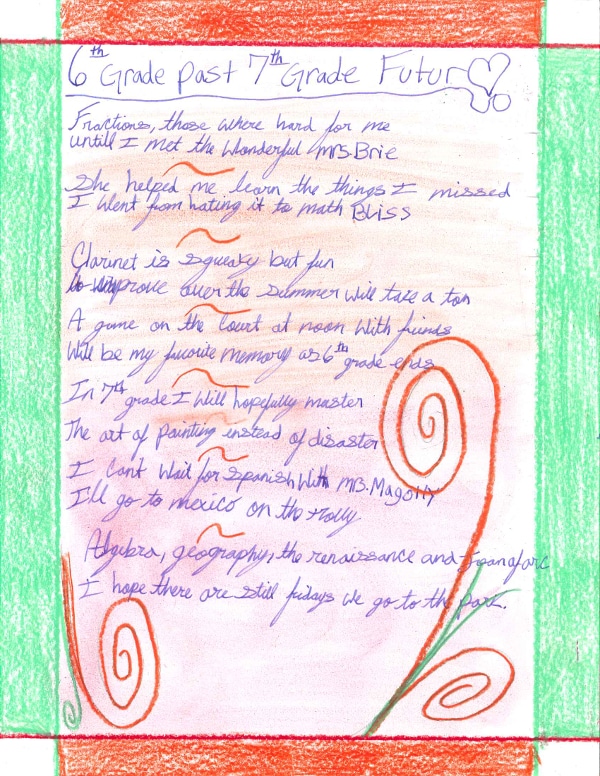 6th Grade past 7th Grade Future
Fractions, those where hard for me
untill I met the Wonderful Mrs. Brie
She helped me learn the things I missed
I went from hating it to math BLiss
Clarinet is squeaky but fun
to improve over the summer will take a ton
A game on the court at noon with friends
Will be my favorite memory as 6th grade ends
In 7th grade I will hopefully master
The art of painting instead of disaster
I can't wait for spanish with Mrs.
I'll go to mexico on the trolly
Algebra, geography, the renaissance and Joan of arc
I hope there are still fridays we go to the park.